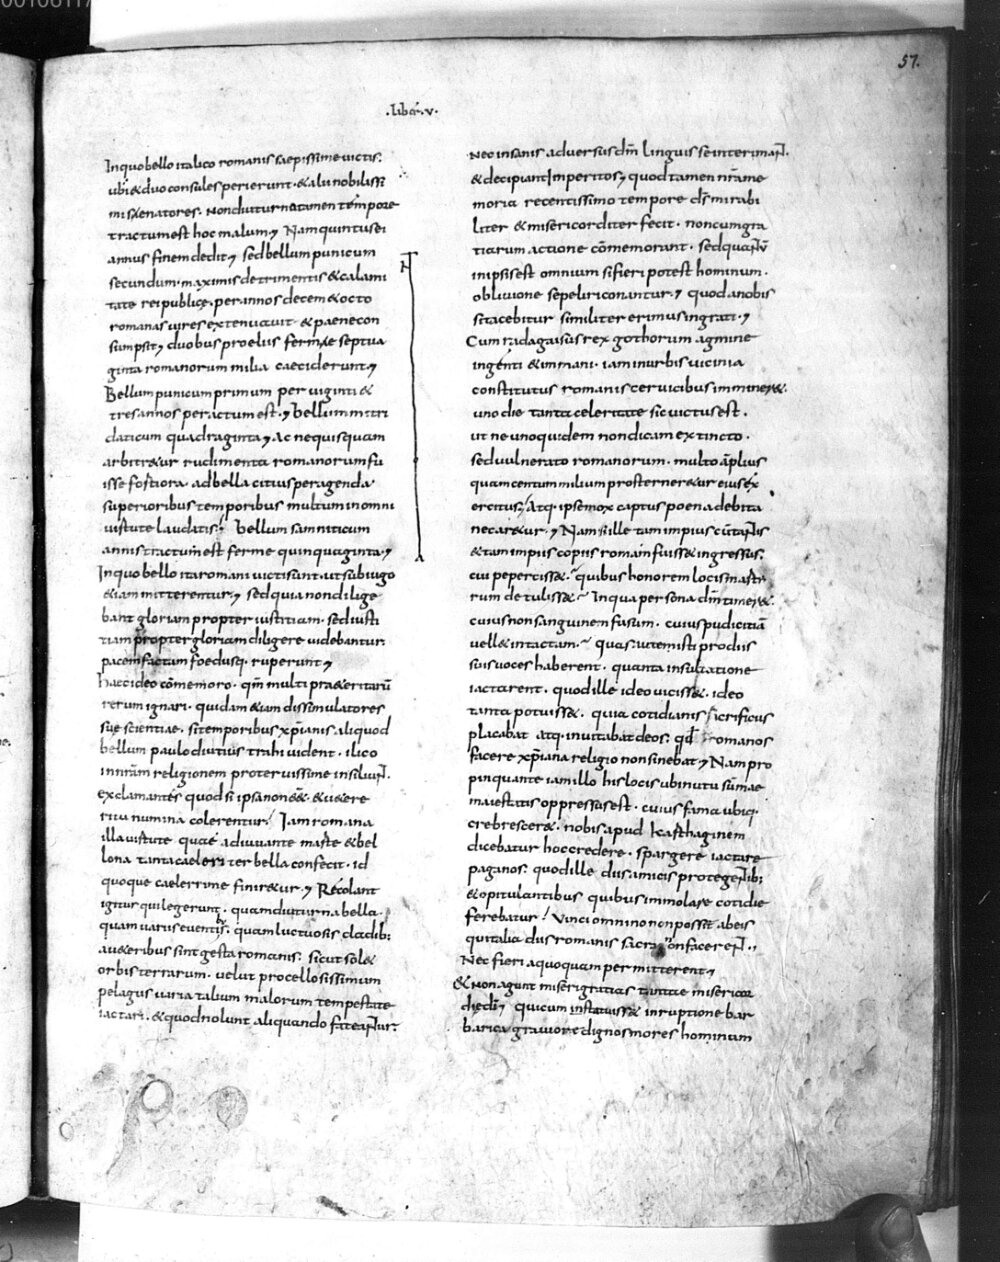 57.
.liber.v.
In quo bello italico romanis saepissime victis.
ubi & duo consules perierunt. & alii nobilissi
mi senatores. non diuturno tamen tempore
tractum est hoc malum; Nam quintus ei
annus finem dedit; sed bellum punicum
secundum. maximis detrimentis & calami
tate rei publicę. per annos decem & octo
romanas vires extenuavit & paene con
sumpsit; duobus proeliis ferme septua
ginta romanorum milia caeciderunt;
Bellum punicum primum per viginti &
tres annos peractum est.; bellum mitri
daticum quadraginta; ac ne quisquam
arbitr&ur rudimenta romanorum fu
isse fortiora. ad bella citius peragenda
superioribus temporibus multum in omni
virtute laudatis. bellum samniticum
annis tractum est ferme quinquaginta;
In quo bello ita romani victi sunt. ut sub iugo
&iam mitterentur; sed quia non dilige
bant gloriam propter iustitiam. sed iusti
tiam propter gloriam diligere videbantur.
pacem factam foedusq. ruperunt;
haec ideo cōmemoro. qm̄ multi pra&eritarū
rerum ignari. quidam &iam dissimulatores
suę scientiae. si temporibus xp̄ianis aliquod
bellum paulo diutius trahi vident. ilico
in nr̄am religionem protervissime insiliunt.
exclamantes quod si ipsa non ess&. & v&ere
ritu numina colerentur. Iam romana
illa virtute quae adiuvante marte & bel
lona tanta caeleriter bella confecit. id
quoque caelerrime finir&ur.; Recolant
igitur qui legerunt. quam diuturna bella.
quam variis eventibus. quam luctuosis cladib;
a v&eribus sint gesta romanis. sicut sol&
orbis terrarum. velut procellosissimum
pelagus varia talium malorum tempestate
iactari. & quod nolunt aliquando fateantur.
Nec insanis adversus dm̄ linguis se interimant.
& decipiant Imperitos; quod tamen nr̄a me
moria recentissimo tempore ds̄ mirabi
liter & misericorditer fecit. non cum gra
tiarum actione cōmemorant. sed quantū
in ipsis est omnium si fieri potest hominum.
oblivione sepeliri conantur.; quod a nobis
si tacebitur similiter erimus ingrati.;
Cum radagaisus rex gothorum agmine
ingenti & inmani. iam in urbis vicinia
constitutus romanis cervicibus immineret.
uno die tanta celeritate sic victus est.
ut ne uno quidem non dicam extincto.
sed vulnerato romanorum. multo āplius
quam centum milium prosterner&ur eius ex
ercitus, Atq. ipse mox captus poena debita
necar&ur.; Nam si ille tam impius cū tantis
& tam impiis copiis romam fuiss& ingressus.
cui peperciss&. quibus honorem locis martr
rum detuliss&. In qua persona dm̄ timer&.
cuius non sanguinem fusum. cuius pudicitiā
vell& intactam. quas autem isti pro diis
suis voces haberent. quanta insultatione
iactarent. quod ille ideo viciss&. ideo
tanta potuiss&. quia cotidianis sacrificiis
placabat atq. invitabat deos. qđ romanos
facere xp̄iana religio non sinebat; Nam pro
pinquante iam illo his locis ubi nutu sūmae
maiestatis oppressus est. cuius fama ubiq.
crebresceret. nobis apud karthaginem
dicebatur hoc credere. spargere iactare
paganos. quod ille diis amicis protegentib;
& opitulantibus quibus immolare cotidie
ferebatur. Vinci omnino non poss& ab eis
qui talia diis romanis sacra non facerent.;
Nec fieri a quoquam permitterent;
& non agunt miseri gratias tantae misericor
diae dī; qui cum instatuiss& inruptione bar
barica graviore dignos mores hominum